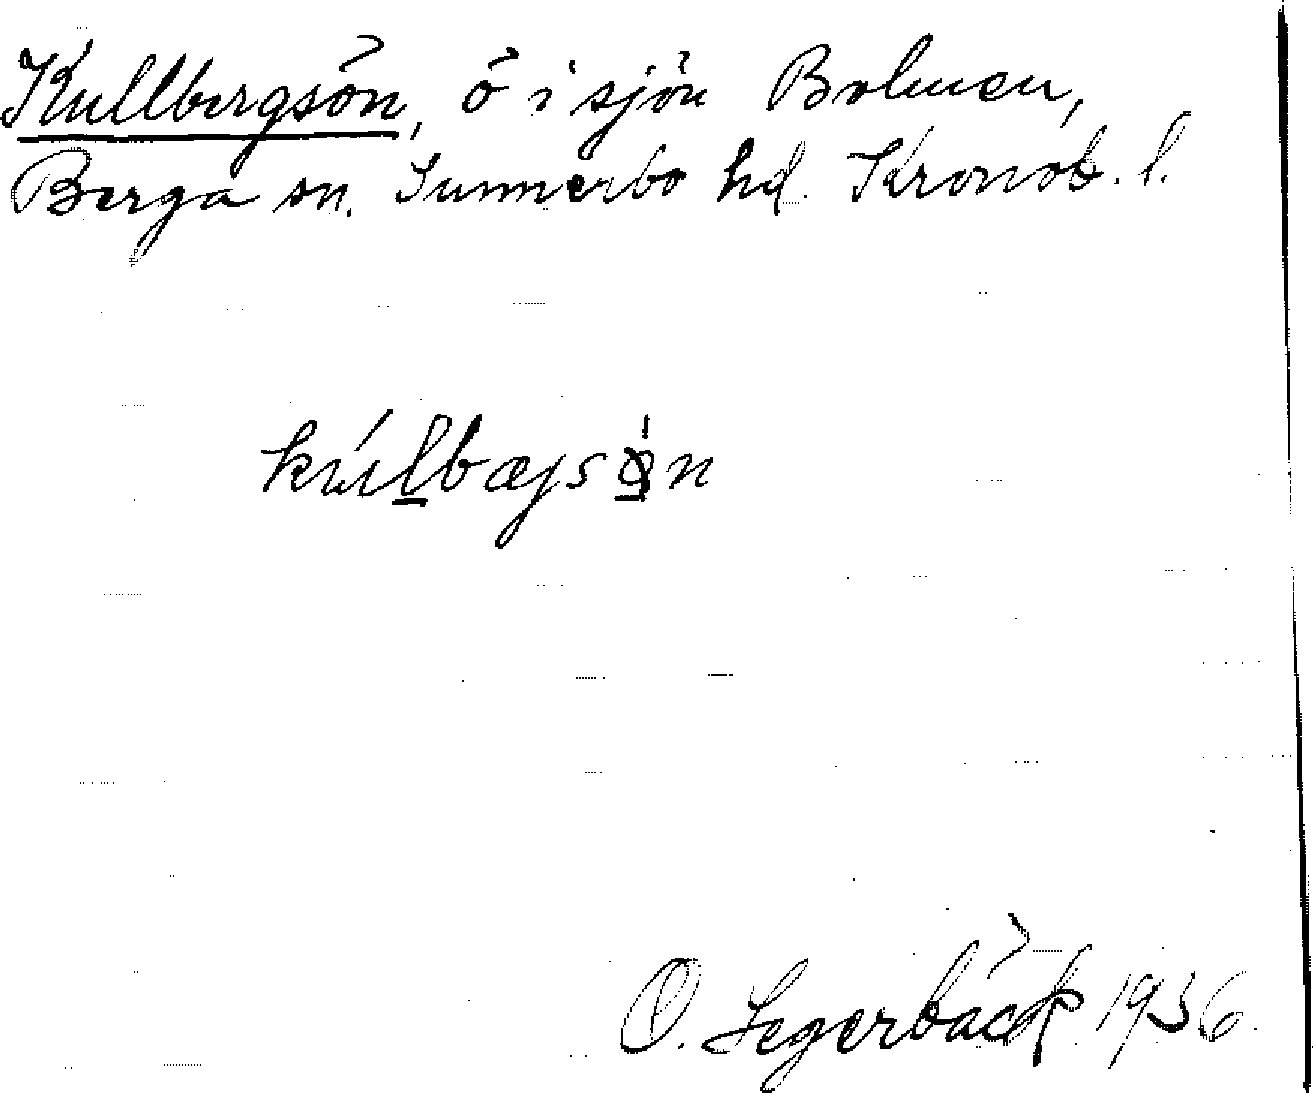 Kullbergsön, ö i sjön Bolmen,
Berga sn. Sunnerbo hd. Kronob. l.
kúlbæjsö̀n
O. Segerbäck 1936